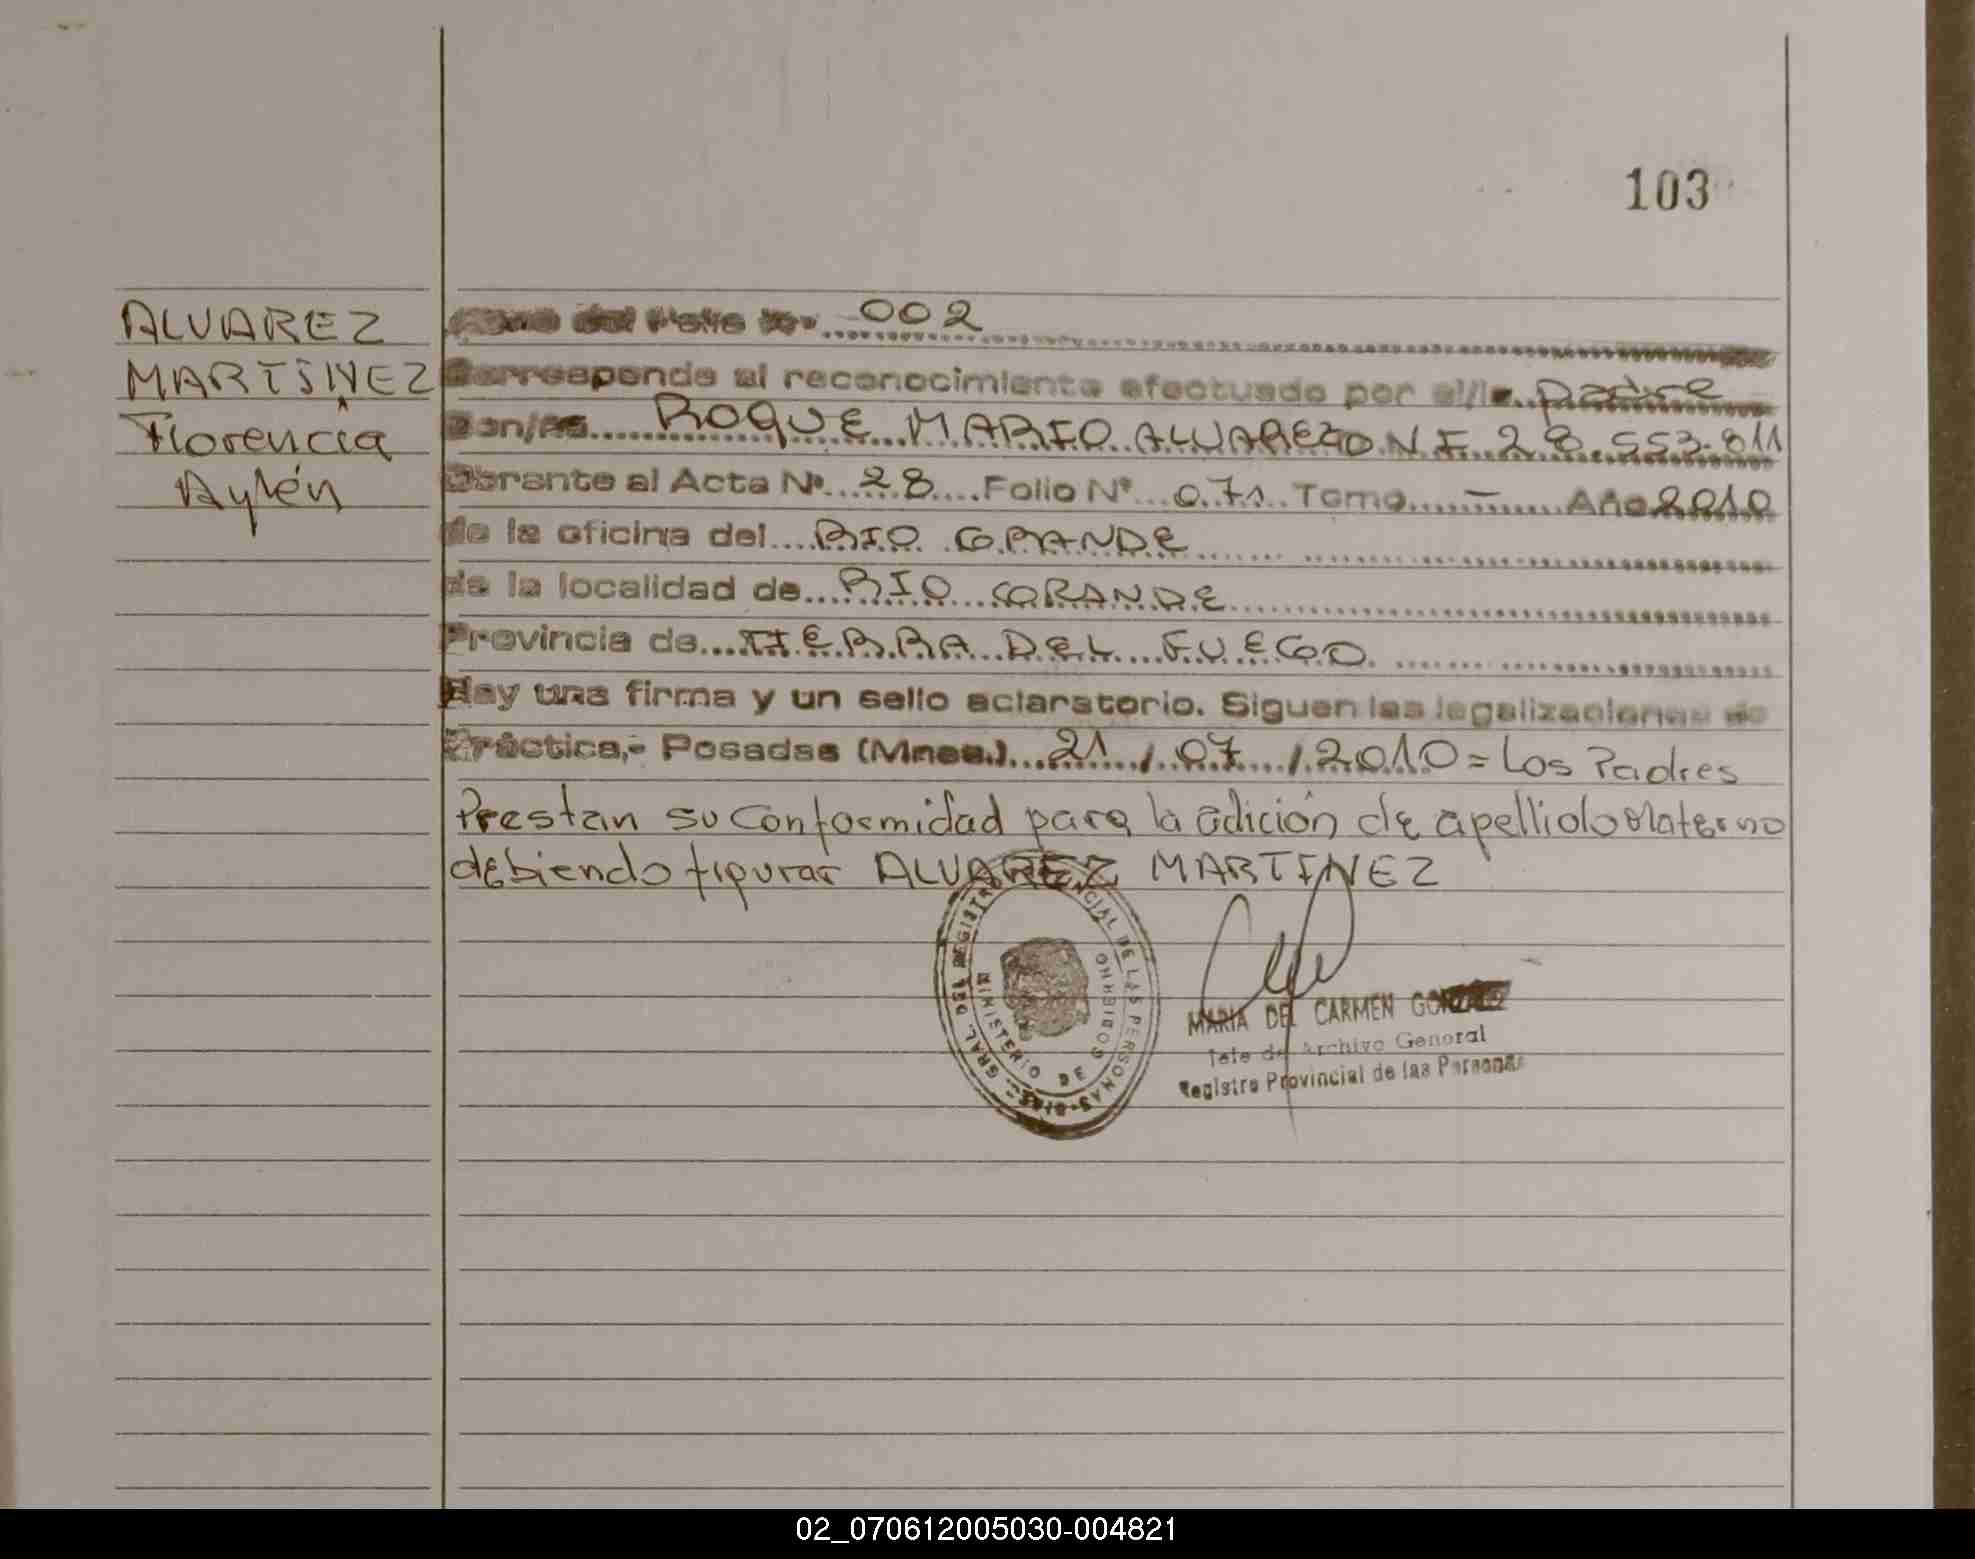 103
ALVAREZ
MARTINEZ
Florencia
Aylén
del Folio Nº 002
Corresponde al reconocimiento efectuado por el/la padre
Don/ña ROQUE MARIO ALVAREZ D.N.I. 28.553.811
Obrante al Acta Nº 28 Folio Nº 071 Tomo — Año 2010
de la oficina del RIO GRANDE
de la localidad de RIO GRANDE
Provincia de TIERRA DEL FUEGO
Hay una firma y un sello aclaratorio. Siguen las legalizaciones de
Práctica,- Posadas (Mnes.) 21 / 07 / 2010 = Los Padres
Prestan su conformidad para la adición de apellido Materno
debiendo figurar ALVAREZ MARTINEZ
GRAL. DEL REGISTRO PROVINCIAL DE LAS PERSONAS
MINISTERIO DE GOBIERNO
MARIA DEL CARMEN
Jefe de Archivo General
Registro Provincial de las Personas
02_070612005030-004821